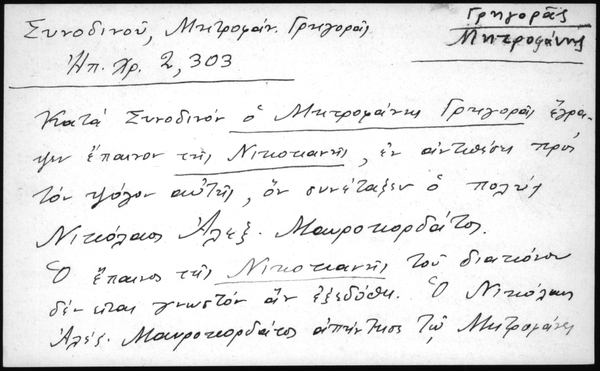 Γρηγορᾶς
Μητροφάνης
Συνοδινοῦ, Μητροφάν. Γρηγορᾶς
Ἠπ. Χρ. 2, 303
Κατά Συνοδινόν ὁ Μητροφάνης Γρηγορᾶς ἔγρα-
ψεν ἔπαινον τῆς Νικοτιανῆς, ἐν ἀντιθέσει πρός
τόν ψόγον αὐτῆς, ὅν συνέταξεν ὁ πολύς
Νικόλαος Ἀλεξ. Μαυροκορδᾶτος.
Ὁ ἔπαινος τῆς Νικοτιανῆς τοῦ διακόνου
δέν εἶναι γνωστόν ἄν ἐξεδόθη. Ὁ Νικόλαος
Ἀλέξ. Μαυροκορδᾶτος ἀπήντησε τῷ Μητροφάνῃ